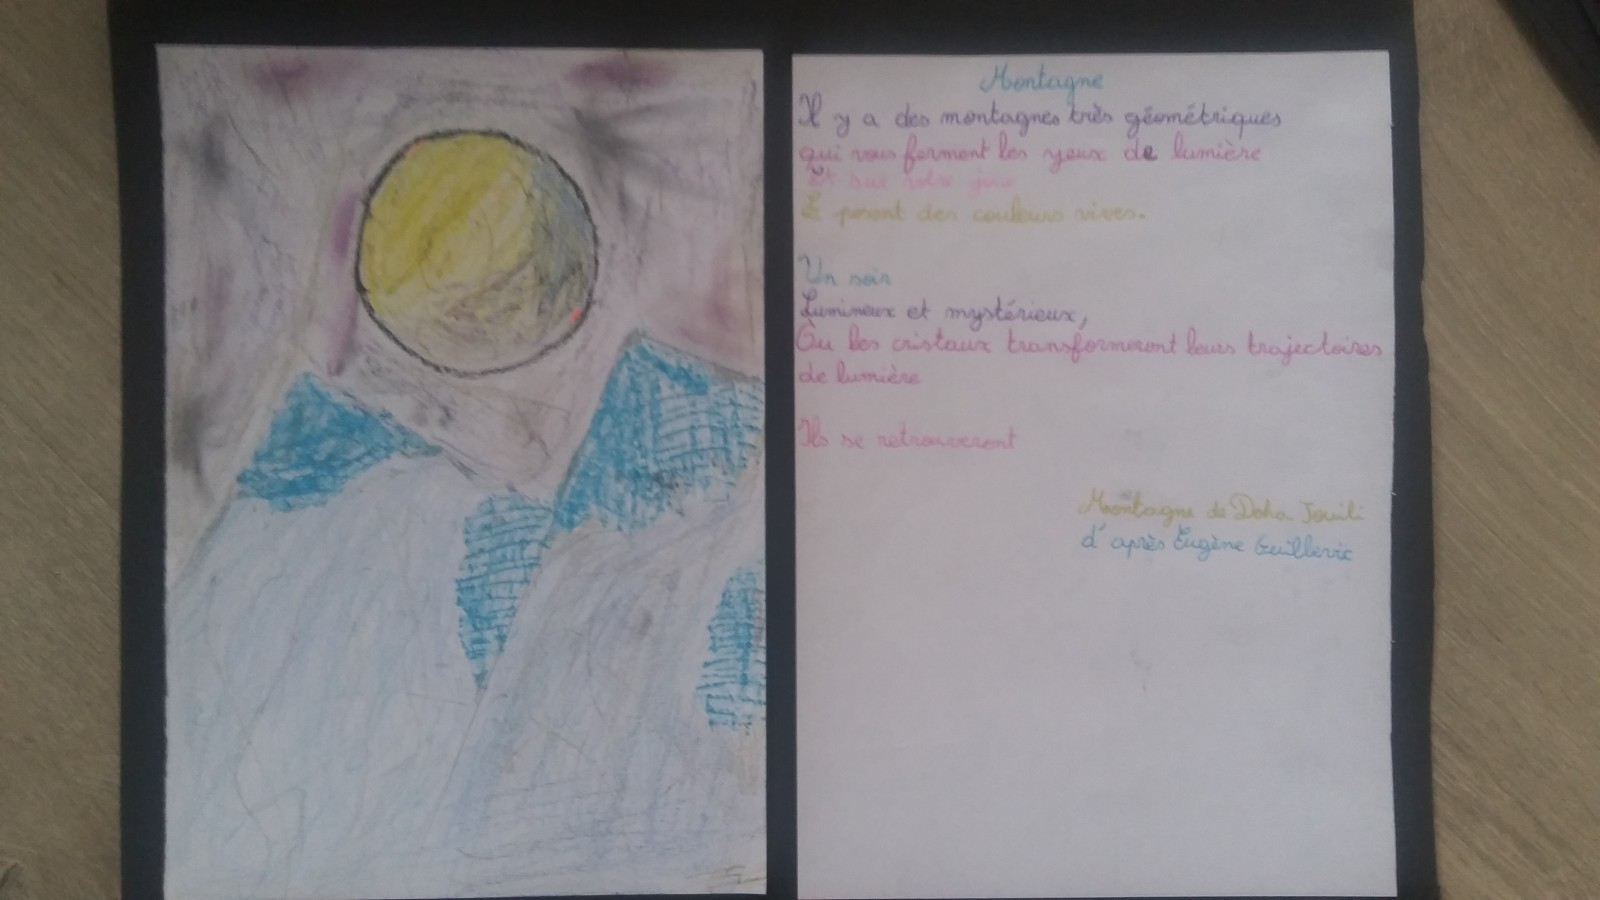 Montagne
Il y a des montagnes très géométriques
qui vous ferment les yeux de lumière
Et sur votre joue
Se posent des couleurs vives.
Un soir
Lumineux et mystérieux,
Ou les cristaux transformeront leurs trajectoires
de lumière
Ils se retrouveront
Montagne de Doha Jouili
d'après Eugène Guillevic